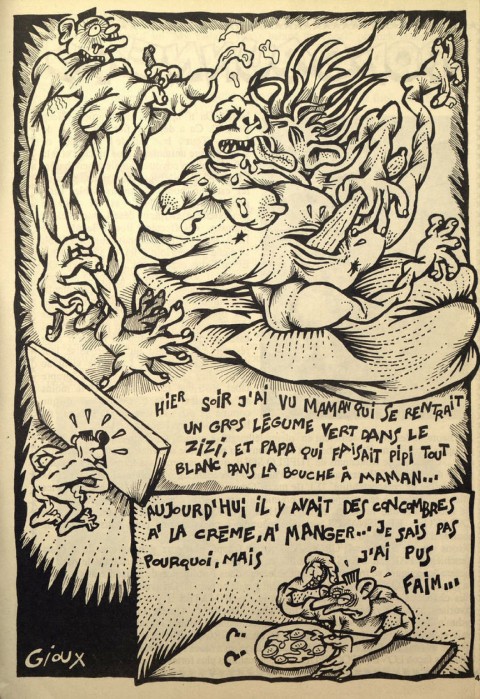 HIER SOIR J'AI VU MAMAN QUI SE RENTRAIT
UN GROS LÉGUME VERT DANS LE
ZIZI, ET PAPA QUI FAISAIT PIPI TOUT
BLANC DANS LA BOUCHE À MAMAN...
AUJOURD'HUI IL Y AVAIT DES CONCOMBRES
A' LA CRÈME, A' MANGER... JE SAIS PAS
POURQUOI, MAIS J'AI PUS
FAIM...
? ?
GIOUX